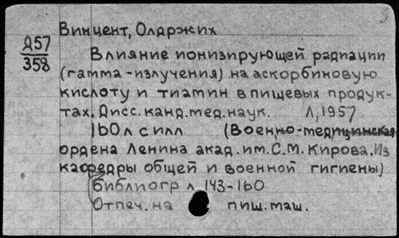 3
Винцент, Олдржих
Д57
358
Влияние ионизирующей радиации
(гамма-излучения) на аскорбиновую
кислоту и тиамин в пищевых продук-
тах. Дисс. канд. мед. наук. Л, 1957
160л с илл (Военно-медицинская
ордена Ленина акад. им. С.М. Кирова. Из
кафедры общей и военной гигиены)
(библиогр л 143-160
Отпеч. на пиш. маш.